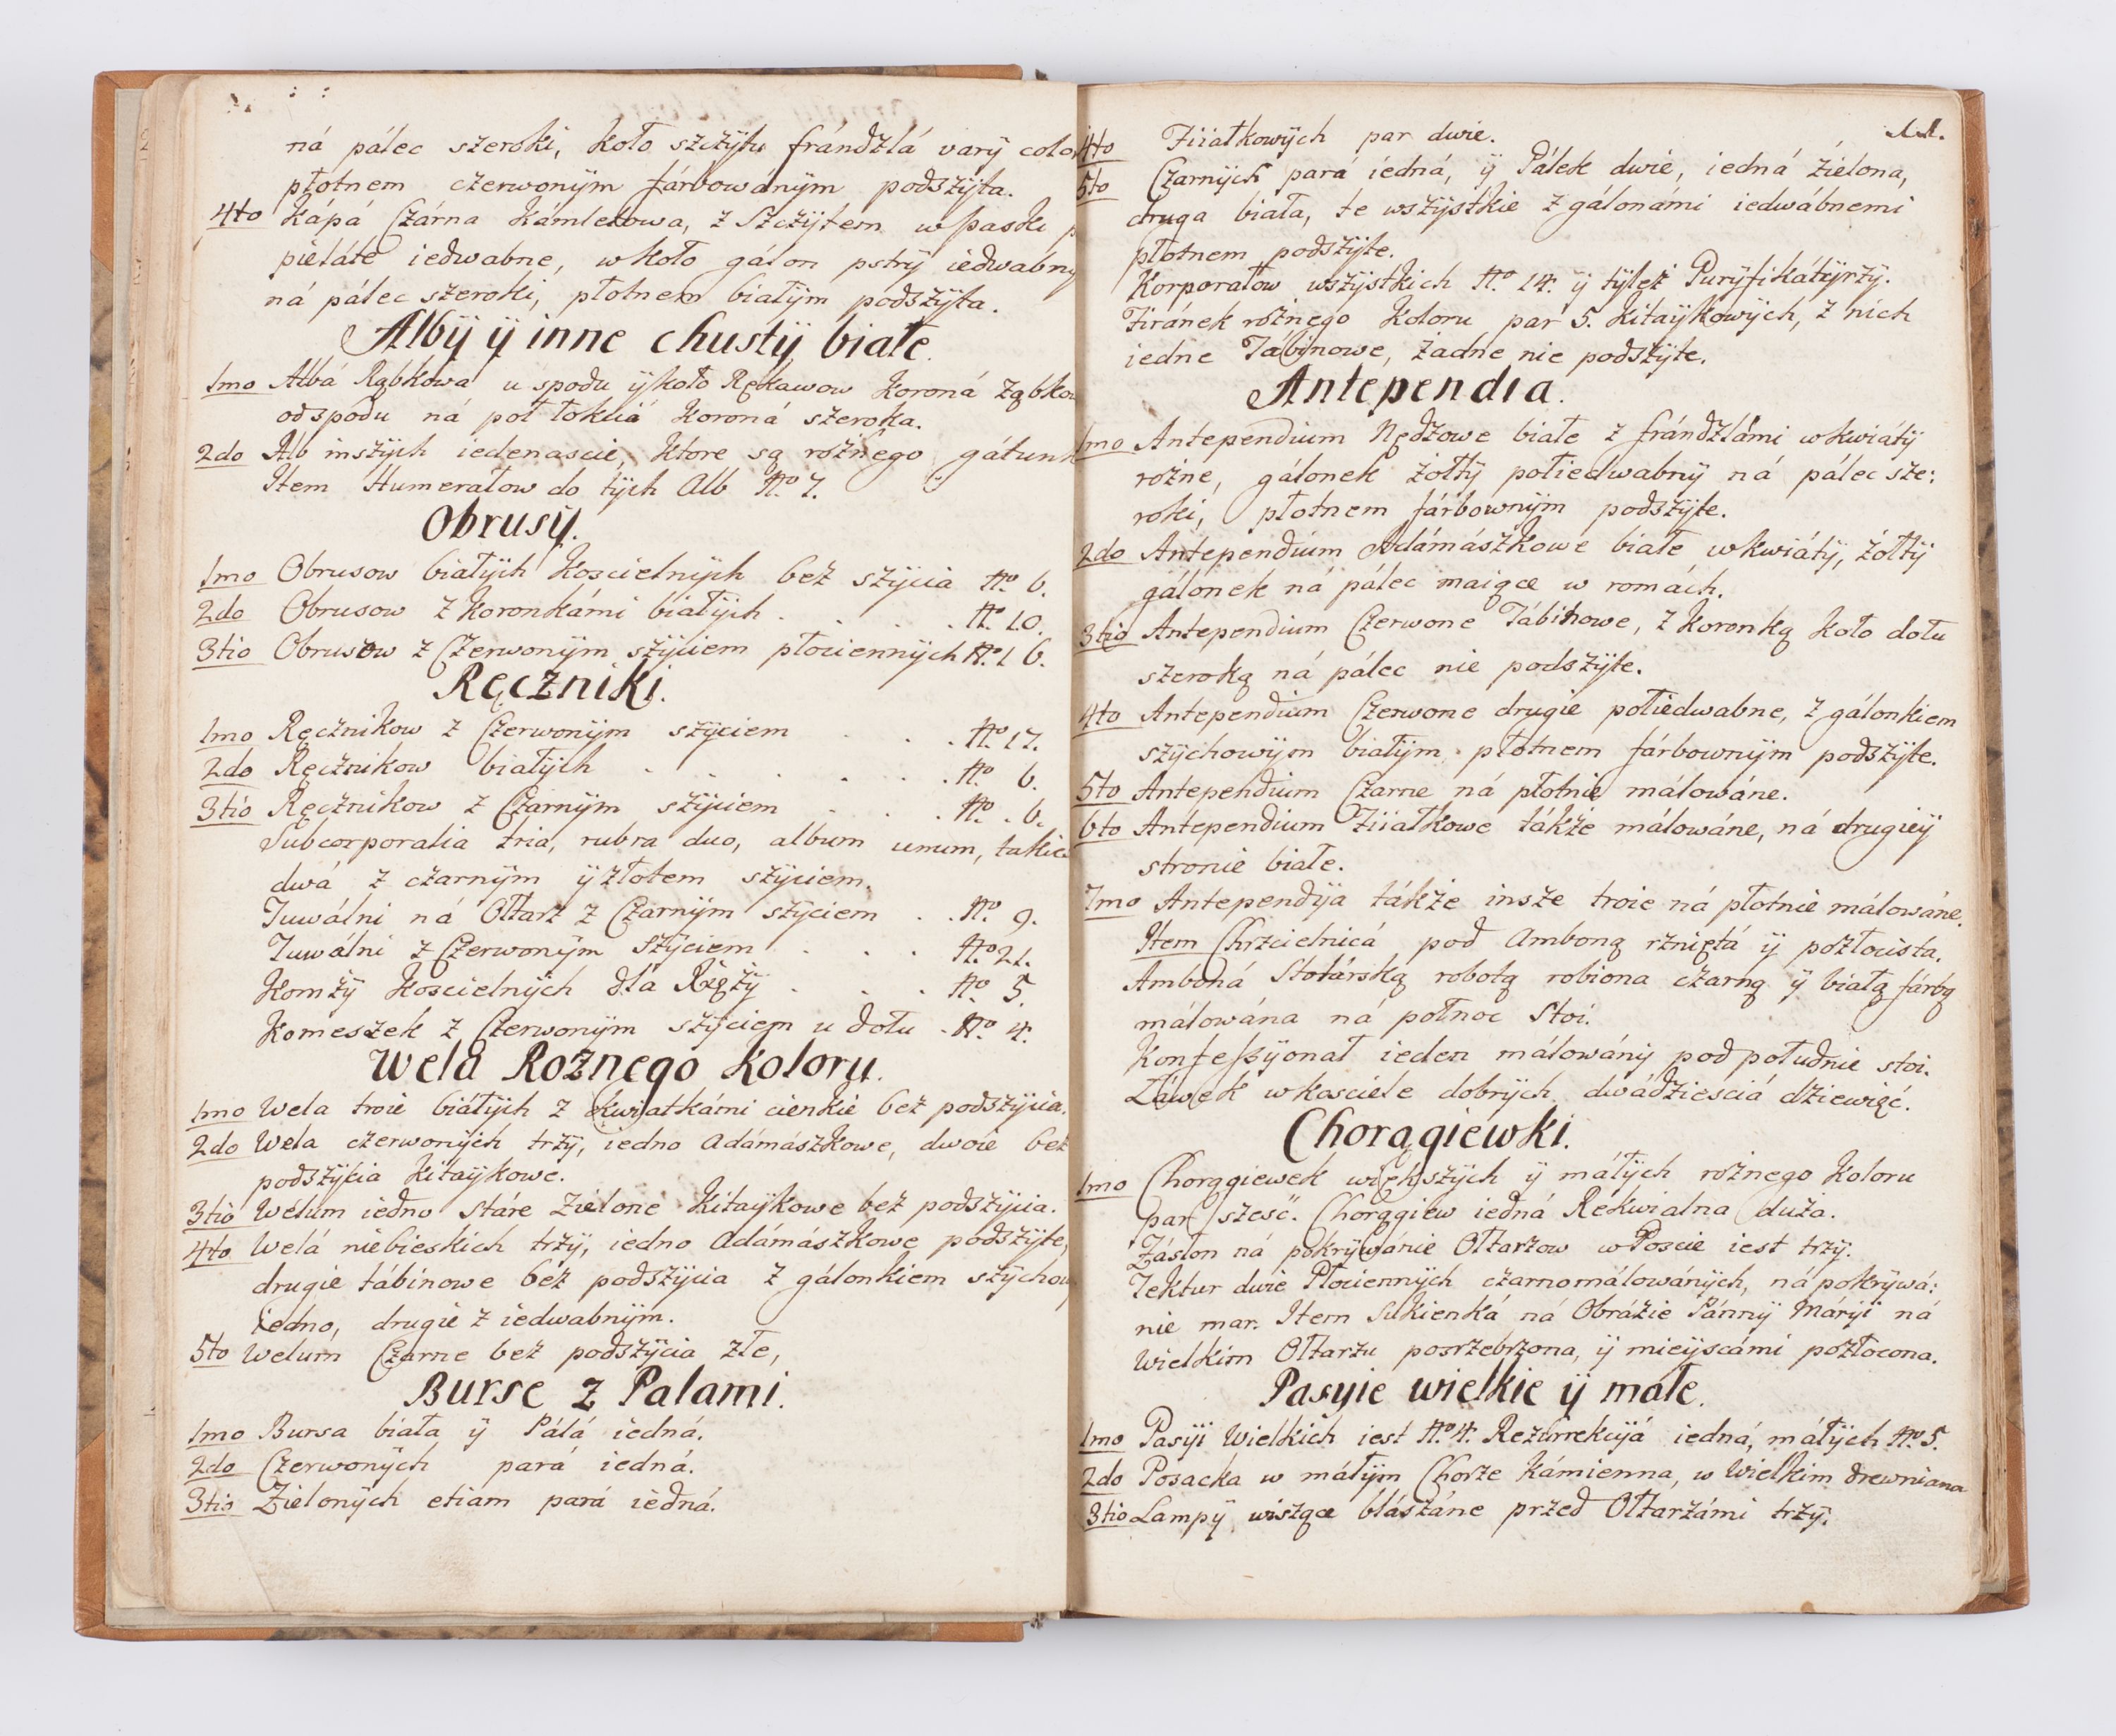 ná pálec szeroki, koło szczytu frándzlá vary colo
płotnem czerwonÿm fárbowánÿm podszÿta.
4to Kápá Czárna Kámletowa, z Szczÿtem w paski
piéláté iedwabne, w koło gálon pstrÿ iedwabnÿ
ná pálec szeroki, płotnem białÿm podszÿta.
Albÿ ÿ inne chustÿ białe.
1mo Albá Rąbkowa u spodu ÿ koło Rękawow Koroná ząbkow
odspodu ná poł łokcia Koroná szeroka.
2do Alb inszÿch iedenascie, Ktore są rożnego gátunk
Item Humerałow do tÿch Alb No 7.
Obrusÿ.
1mo Obrusow białÿch Koscielnÿch beż szÿcia No. 6.
2do Obrusow z koronkámi białÿch . . . . No 10.
3tio Obrusow z Czerwonÿm szÿciem płociennÿch No. 16.
Ręczniki.
1mo Ręcznikow z Czerwonÿm szÿciem . . . No 17.
2do Ręcznikow białÿch . . . . . . No 6.
3tio Ręcznikow z Czarnÿm szÿciem . . . No. 6.
Subcorporalia tria, rubra duo, album unum, takie
dwá z czarnÿm ÿ złotem szÿciem.
Tuwálni ná Ołtarz z Czarnÿm szÿciem . . No. 9.
Tuwálni z Czerwonÿm Szÿciem . . . No 21.
Komżÿ Koscielnÿch dlá Xiężÿ . . . No. 5.
Komeszek z Czerwonÿm szÿciem u dołu . No. 4.
Wela Rożnego Koloru.
1mo Wela troie biáłÿch z Kwiatkámi cienkié beż podszÿcia.
2do Wela czerwonÿch trzÿ, iedno Adámászkowe, dwoie beż
podszÿcia Kitaÿkowe.
3tio Wélum iedno Stáre Zielone Kitaÿkowe beż podszÿcia.
4to Welá niebieskich trzÿ, iedno Adámászkowe podszÿte,
drugie tábinowe béż podszÿcia z gálonkiem szÿchow
iedno, drugie z iedwabnÿm.
5to Welum Czarne beż podszÿcia złe,
Burse z Palami.
1mo Bursa biała ÿ Pálá iedná.
2do Czerwonÿch pará iedná.
3tio Zielonÿch etiam pará iedná.
11.
4to Fiiałkowÿch par dwie.
5to Czarnÿch pará iedná, ÿ Pálek dwie, iedná żielona,
druga biała, te wszÿstkie z gálonámi iedwábnemi
płotnem podszÿte.
Korporałow wszÿstkich No. 14. ÿ tÿleż Purÿfikátÿrzÿ.
Firánek rożnego Koloru par 5. Kitaÿkowÿch, z nich
iedne Tabinowe, żadne nie podszÿte.
Antependia.
1mo Antependium Nędzowe białe z frándzlámi w kwiátÿ
rożne, gálonek żołtÿ połiedwabnÿ ná pálec sze:
roki, płotnem fárbownÿm podszÿte.
2do Antependium Adámászkowe białe w kwiátÿ, żołtÿ
gálonek ná pálec maiące w romách.
3tio Antependium Czerwone Tábinowe, z Koronką koło dołu
szeroką ná pálec nie podszÿte.
4to Antependium Czerwone drugie połiedwabne, z gálonkiem
szÿchowÿm białÿm, płotnem fárbownÿm podszÿte.
5to Antependium Czarne ná płotnie málowáne.
6to Antependium Fiiałkowe tákże málowáne, ná drugieÿ
stronie białe.
7mo Antependÿa tákże insze troie ná płotnie málowáne.
Item Chrzcielnicá pod Amboną rzniętá ÿ pozłocista.
Amboná Stolárską robotą robiona czarną ÿ białą fárbą
málowána ná połnoc Stoi.
Konfessÿonał ieden málowánÿ, pod południe stoi.
Láwek w kosciele dobrÿch dwádziesciá dziewięć.
Chorągiewki.
1mo Chorągiewek większÿch ÿ máłÿch rożnego Koloru
par szesć. Chorągiew iedná Rekwialna duża.
Zásłon ná pokrÿwánie Ołtarzow w Poscie iest trzÿ.
Tektur dwie Płociennÿch czarnomálowánÿch, ná pokrÿwá:
nie mar. Item Sukienká ná Obrázie Pánnÿ Márÿi ná
Wielkim Ołtarzu posrzebrzona, ÿ mieÿscámi pozłocona.
Pasyie wielkie ÿ małe.
1mo Pasÿi Wielkich iest No. 4. Rezurrekcÿá iedná, máłÿch No 5.
2do Posacka w máłÿm Chorze Kámienna, w Wielkim drewniana
3tio Lampÿ wiszące blászáne przed Ołtarzámi trzÿ.